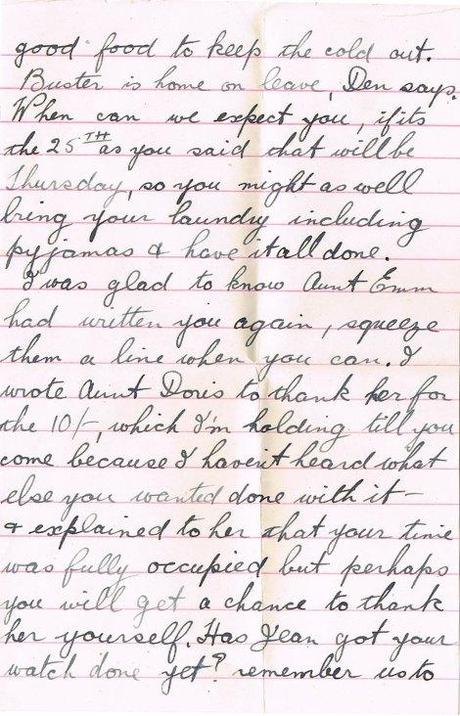 good food to keep the cold out.
Buster is home on leave, Den says.
When can we expect you, if its
the 25TH as you said that will be
Thursday, so you might as well
bring your laundry including
pyjamas & have it all done.
I was glad to know Aunt Emm
had written you again, squeeze
them a line when you can. I
wrote Aunt Doris to thank her for
the 10/-, which I'm holding till you
come because I haven't heard what
else you wanted done with it -
& explained to her that your time
was fully occupied but perhaps
you will get a chance to thank
her yourself. Has Jean got your
watch done yet? remember us to